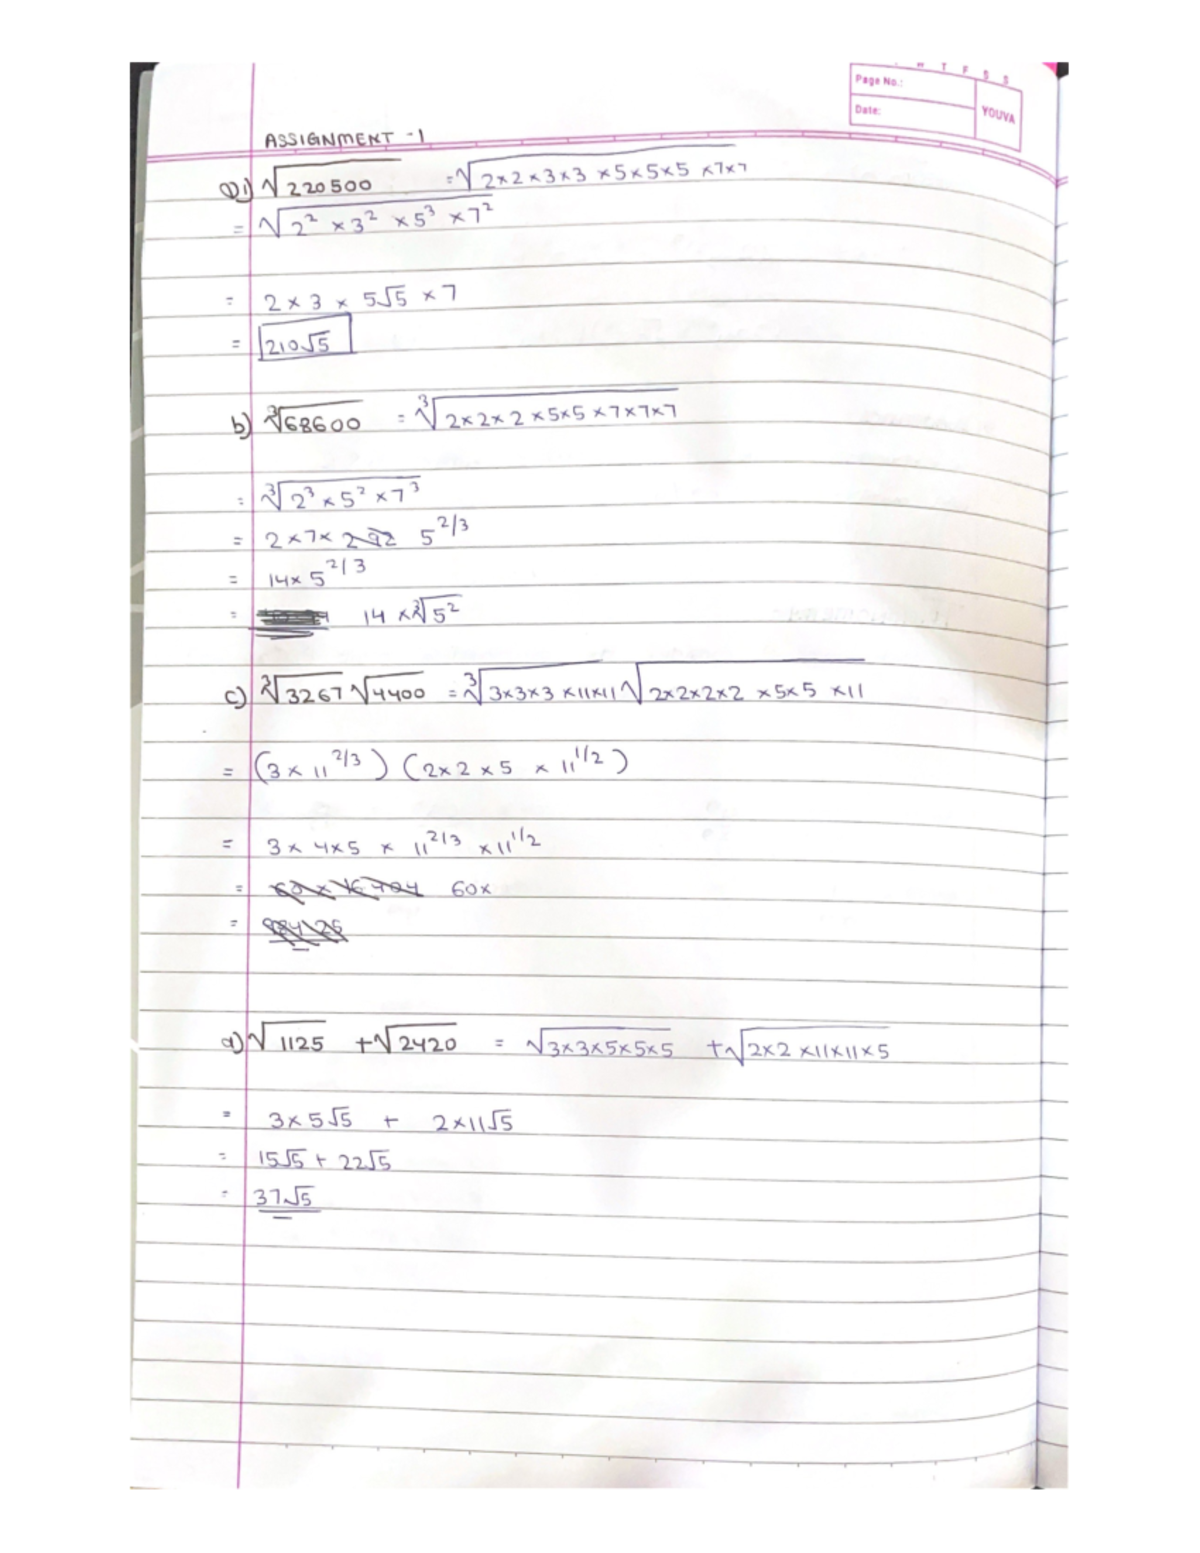 W T F S S
Page No.:
Date:
YOUVA
ASSIGNMENT - 1
Q1) √220500 = √2×2×3×3×5×5×5×7×7
= √2² × 3² × 5³ × 7²
= 2 × 3 × 5√5 × 7
= 210√5
b) ∛68600 = ∛2×2×2×5×5×7×7×7
= ∛2³ × 5² × 7³
= 2 × 7 × 5^2/3
= 14 × 5^2/3
= 14 × ∛5²
c) ∛3267 √4400 = ∛3×3×3×11×11 √2×2×2×2×5×5×11
= (3 × 11^2/3) (2×2×5 × 11^1/2)
= 3 × 4×5 × 11^2/3 × 11^1/2
= 60×
=
d) √1125 + √2420 = √3×3×5×5×5 + √2×2×11×11×5
= 3×5√5 + 2×11√5
= 15√5 + 22√5
= 37√5